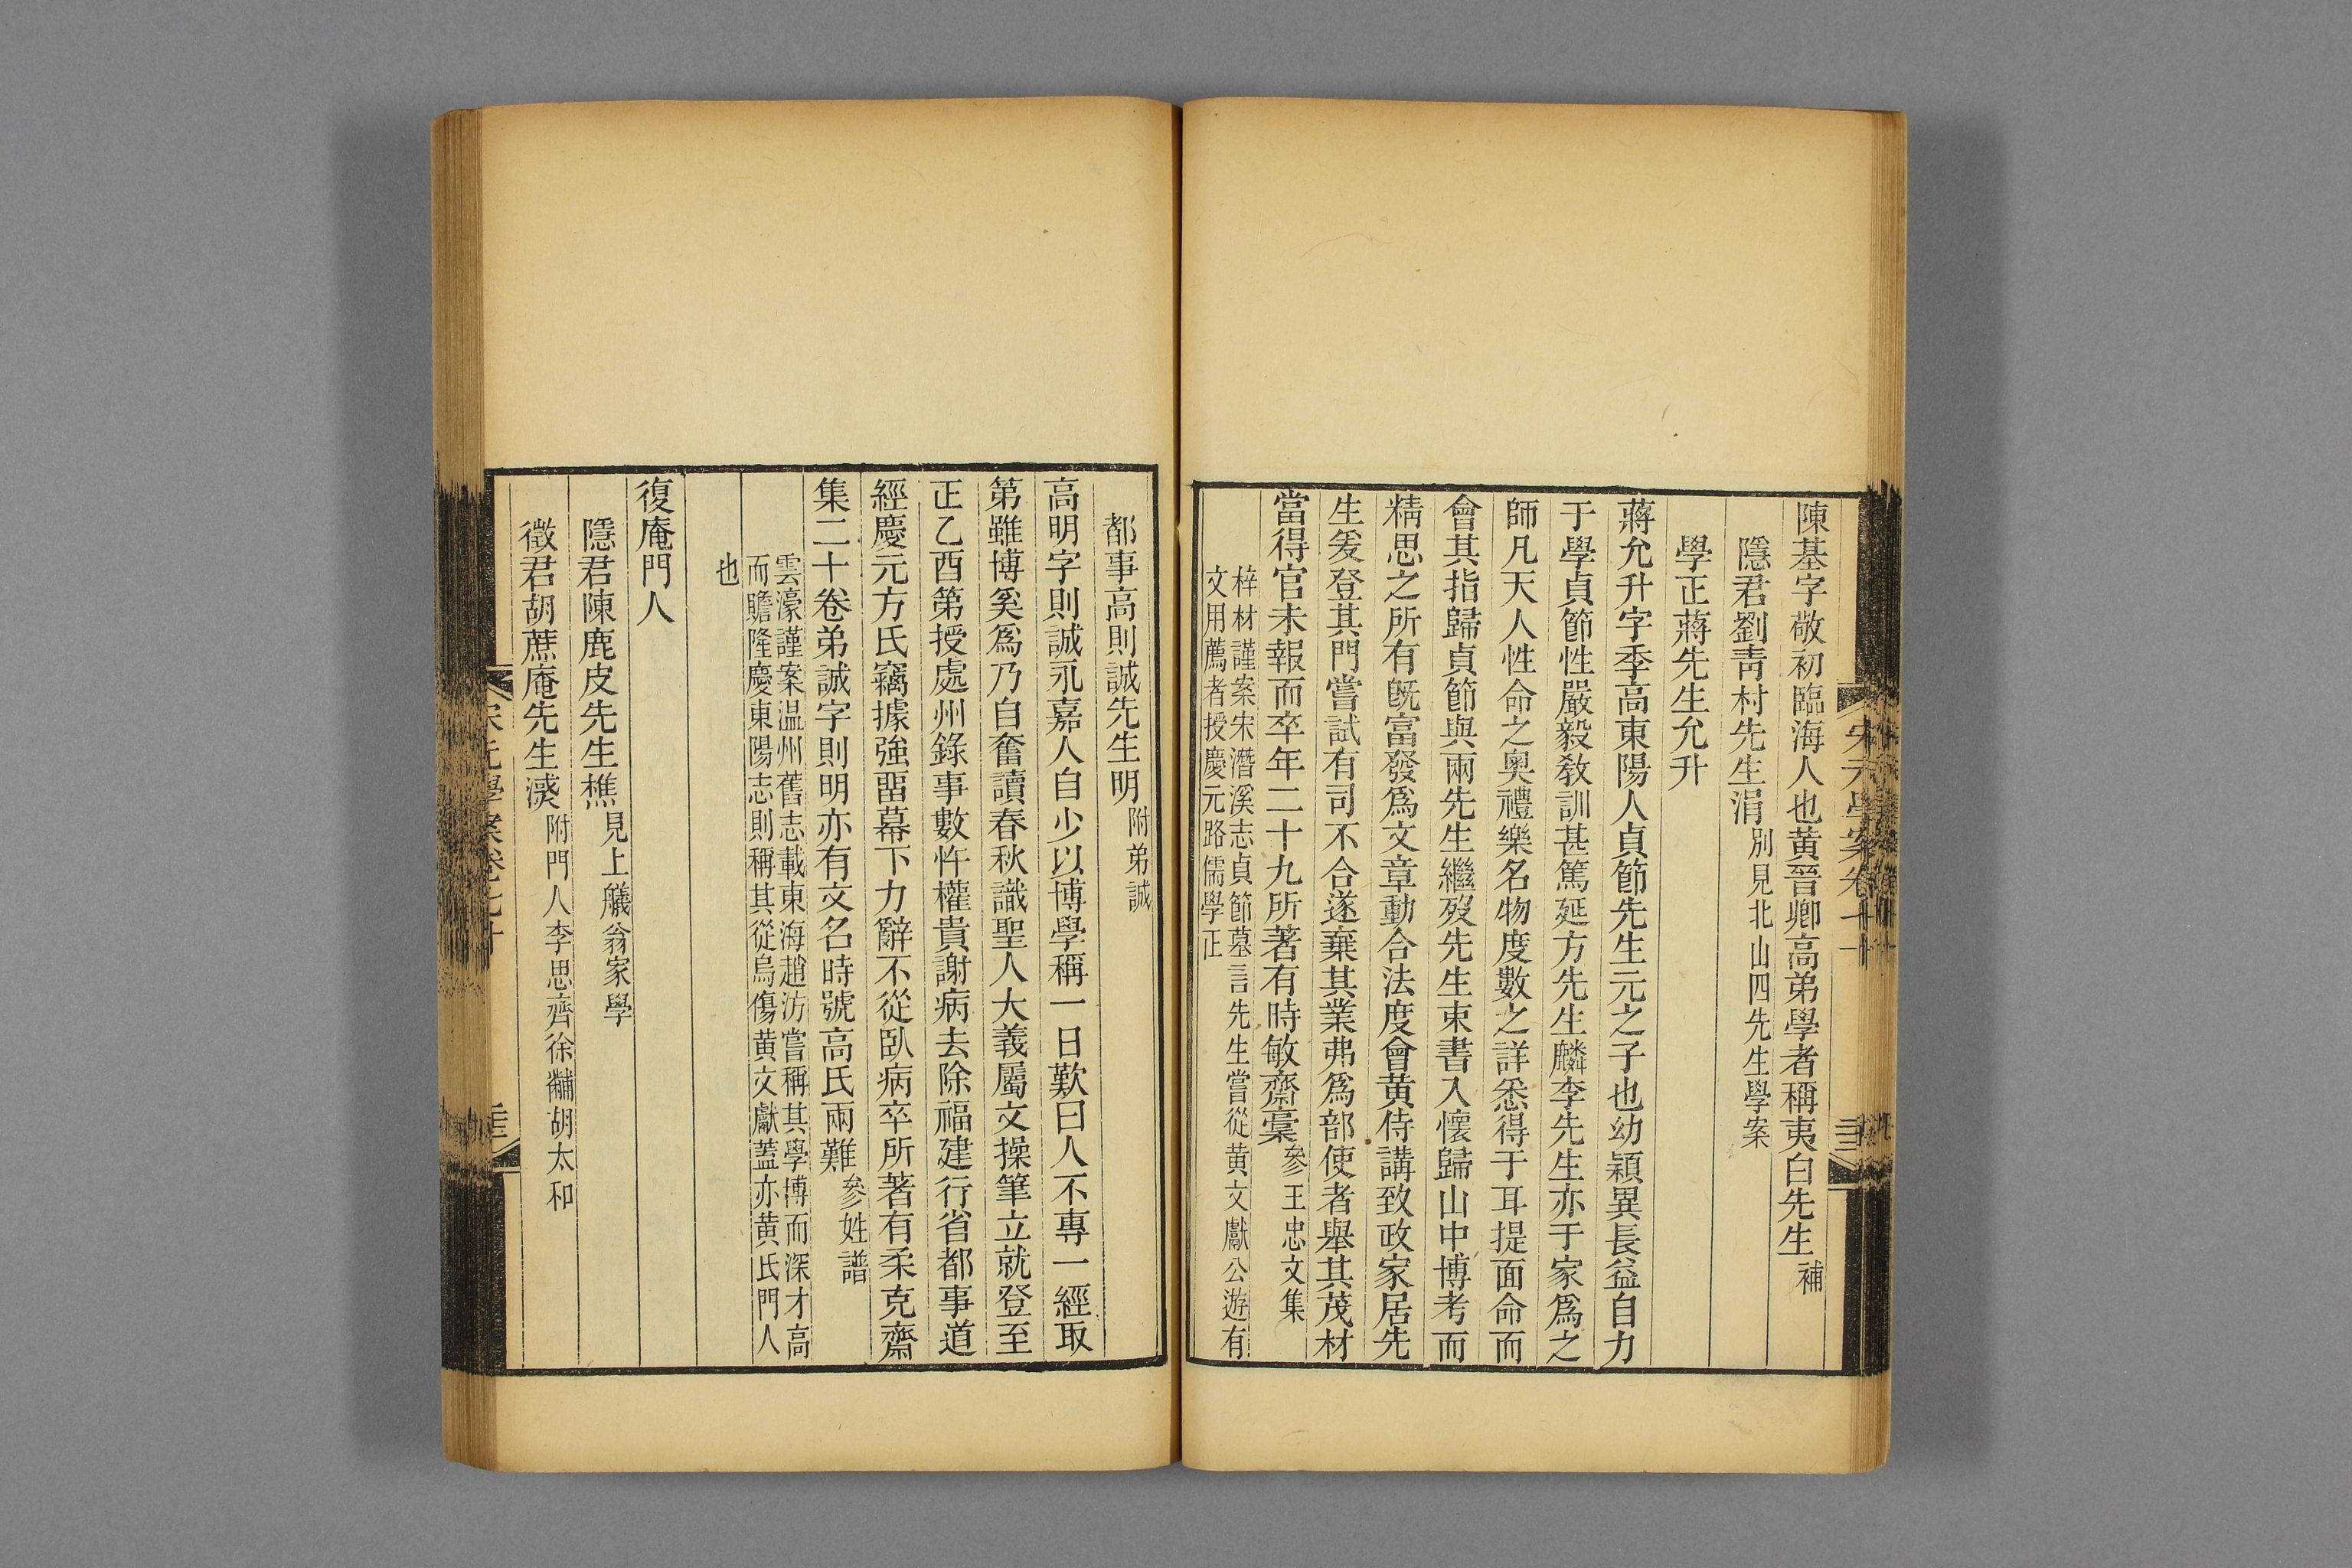 陳基字敬初臨海人也黃晉卿高弟學者稱夷白先生補
隱君劉靑村先生涓別見北山四先生學案
學正蔣先生允升
蔣允升字季高東陽人貞節先生元之子也幼穎異長益自力
于學貞節性嚴毅敎訓甚篤延方先生麟李先生亦于家爲之
師凡天人性命之奧禮樂名物度數之詳悉得于耳提面命而
會其指歸貞節與兩先生繼歿先生束書入懷歸山中博考而
精思之所有旣富發爲文章動合法度會黃侍講致政家居先
生爰登其門嘗試有司不合遂棄其業弗爲部使者舉其茂材
當得官未報而卒年二十九所著有時敏齋稾參王忠文集
梓材謹案宋潛溪志貞節墓言先生嘗從黃文獻公遊有
文用薦者授慶元路儒學正
都事高則誠先生明附弟誠
高明字則誠永嘉人自少以博學稱一日歎曰人不專一經取
第雖博奚爲乃自奮讀春秋識聖人大義屬文操筆立就登至
正乙酉第授處州錄事數忤權貴謝病去除福建行省都事道
經慶元方氏竊據強畱幕下力辭不從臥病卒所著有柔克齋
集二十卷弟誠字則明亦有文名時號高氏兩難參姓譜
雲濠謹案溫州舊志載東海趙汸嘗稱其學博而深才高
而贍隆慶東陽志則稱其從烏傷黃文獻蓋亦黃氏門人
也
復庵門人
隱君陳鹿皮先生樵見上艤翁家學
徵君胡蔗庵先生濙附門人李思齊徐黼胡太和